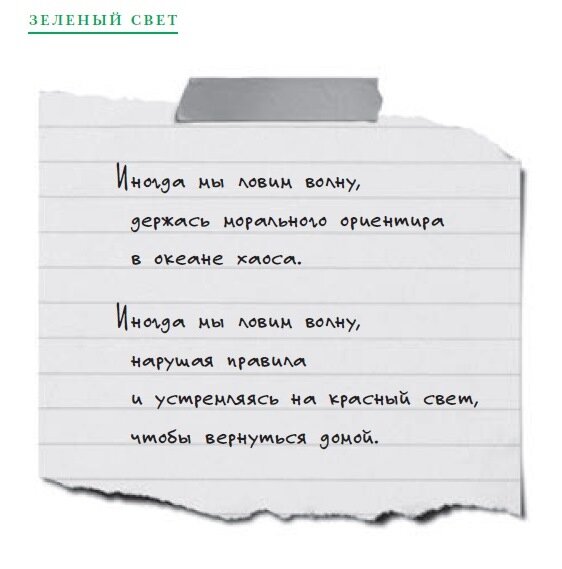 ЗЕЛЕНЫЙ СВЕТ
Иногда мы ловим волну,
держась морального ориентира
в океане хаоса.
Иногда мы ловим волну,
нарушая правила
и устремляясь на красный свет,
чтобы вернуться домой.